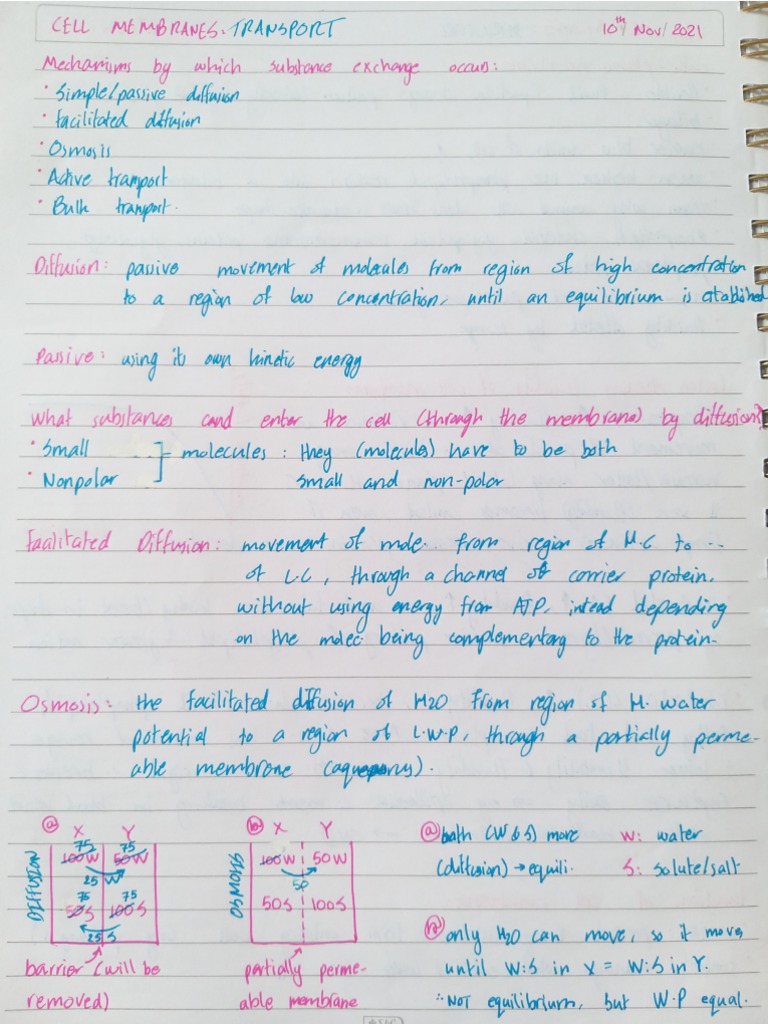 CELL MEMBRANES: TRANSPORT 10th Nov/2021
Mechanisms by which substance exchange occurs:
• Simple/passive diffusion
• facilitated diffusion
• Osmosis
• Active transport
• Bulk transport.
Diffusion: passive movement of molecules from region of high concentration
to a region of low concentration, until an equilibrium is etablished
Passive: using its own kinetic energy
What substances cand enter the cell (through the membrane) by diffusion?
• Small
• Nonpolar
molecules: they (molecules) have to be both
small and non-polar
Facilitated Diffusion: movement of mole.. from region of H.C to ..
of L.C, through a channel of carrier protein,
without using energy from ATP, intead depending
on the molec being complementary to the protein.
Osmosis: the facilitated diffusion of H2O from region of H. water
potential to a region of L.W.P, through a partially perme-
able membrane
ⓐ X Y
DIFFUSION
75 75
100W 50W
25 W
75 75
50S 100S
25 S
barrier (will be
removed)
ⓑ X Y
OSMOSIS
100W 50W
50
50S 100S
partially perme-
able membrane
ⓐ both (W & S) more
(diffusion) → equili.
W: water
S: solute/salt
only H2O can move, so it moves
until W:S in X = W:S in Y.
∴ NOT equilibrium, but W.P equal.